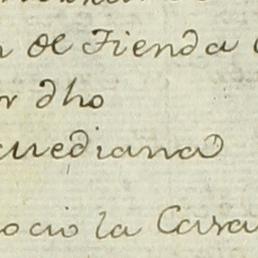 de Tienda
r dho
uediana
ocio la Casa